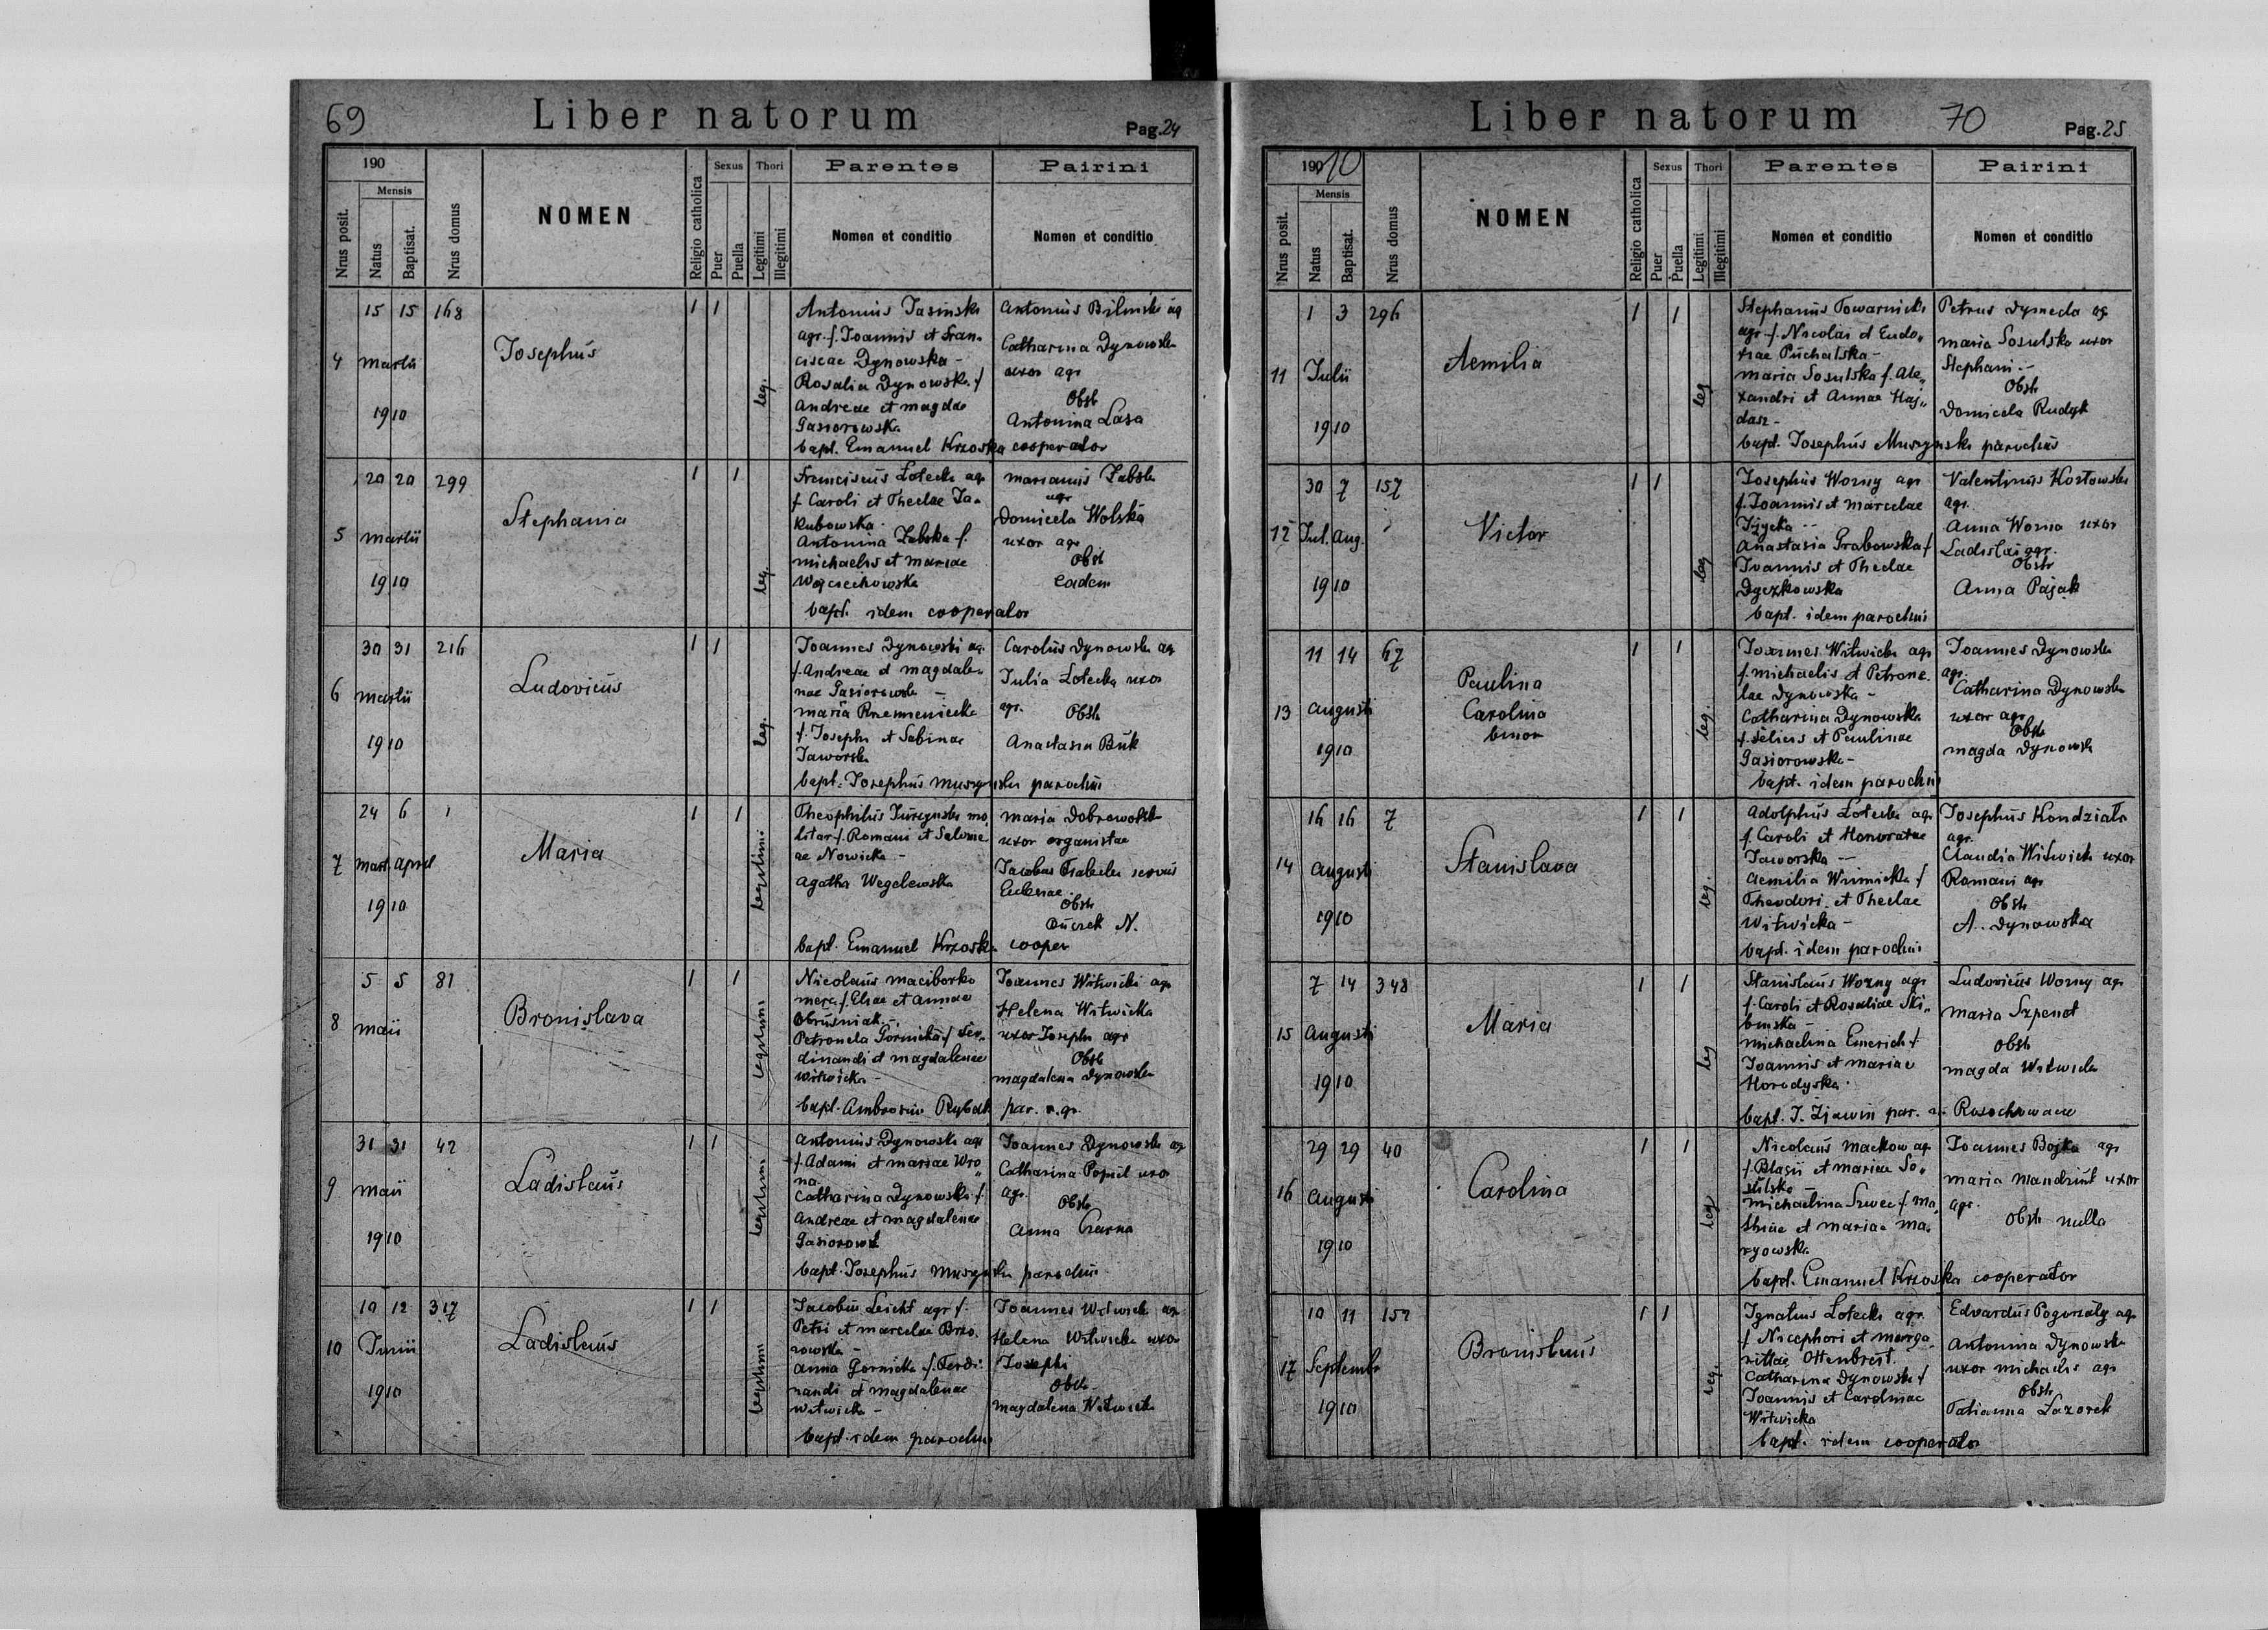 69
Liber natorum
Pag. 24
190
Nrus posit.
Mensis
Natus
Baptisat.
Nrus domus
NOMEN
Religio catholica
Sexus
Puer
Puella
Thori
Legitimi
Illegitimi
Parentes
Nomen et conditio
Pairini
Nomen et conditio
4
15 15 168
Martii
1910
Josephus
1 1
leg.
Antonius Jasinski
agr. f. Joannis et Fran„
ciscae Dynowska –
Rosalia Dynowska f.
Andreae et Magdae
Gasiorowska
bapt. Emanuel Krzoska cooperator
Antonius Bilinski ag
Catharina Dynowska
uxor agr
Obst
Antonina Lasa
5
20 20 299
Martii
1910
Stephania
1 1
leg.
Franciscus Łotecki agr
f. Caroli et Theclae Ja„
kubowska.
Antonina Żabska f.
Michaelis et Mariae
Wojciechowska
bapt. idem cooperator
Marianus Żabski
agr
Domicela Wolska
uxor agr
Obst
eadem
6
30 31 216
Martii
1910
Ludovicus
1 1
leg.
Joannes Dynowski ag.
f. Andreae et Magdale„
nae Gasiorowska –
Maria Krzemieniecka
f. Josephi et Sabinae
Jaworska
bapt. Josephus Muszynski parochus
Carolus Dynowski ag
Julia Łotecka uxor
agr.
Obst
Anastasia Buk
7
24 6 1
Mart. April
1910
Maria
1 1
legitimi
Theophilus Jurzynski mo„
litor f. Romani et Salome„
ae Nowicka –
Agatha Wegelewska
bapt. Emanuel Krzoska cooper
Maria Dobrowolska
uxor organistae
Jacobus servus
Obst
N.
8
5 5 81
Maii
Bronislava
1 1
legitimi
Nicolaus Maciborko
merc. f. Eliae et Annae
Obrusniak –
Petronela Gornicka f. Fer„
dinandi et Magdalenae
Witwicka –
bapt. Ambrosius Rybak par. r. gr.
Joannes Witwicki agr
Helena Witwicka
uxor Josephi agr
Obst
Magdalena Dynowska
9
31 31 42
Maii
1910
Ladislaus
1 1
legitimi
Antonius Dynowski agr
f. Adami et Mariae Wro„
na.
Catharina Dynowska f.
Andreae et Magdalenae
Gasiorowsk
bapt. Josephus Muszynski parochus
Joannes Dynowski ag
Catharina Popiel uxor
agr.
Obst
Anna Czarna
10
10 12 317
Junii
1910
Ladislaus
1 1
legitimi
Jacobus Leicht agr f.
Petri et Marcelae Brzo„
zowska –
Anna Gornicka f. Ferdi„
nandi et Magdalenae
Witwicka –
bapt. idem parochus
Joannes Witwicki ag
Helena Witwicka uxor
Josephi
Obst
Magdalena Witwicka
Liber natorum
70
Pag. 25
1910
Nrus posit.
Mensis
Natus
Baptisat.
Nrus domus
NOMEN
Religio catholica
Sexus
Puer
Puella
Thori
Legitimi
Illegitimi
Parentes
Nomen et conditio
Pairini
Nomen et conditio
11
1 3 296
Julii
1910
Aemilia
1 1
leg
Stephanus Towarnicki
agr f. Nicolai et Eudo„
xiae Puchalska –
Maria Sosulska f. Ale„
xandri et Annae Haj„
dasz –
bapt. Josephus Muszynski parochus
Petrus Dymeda ag
Maria Sosulska uxor
Stephani –
Obst
Domicela Rudyk
12
30 7 157
Jul. Aug.
1910
Victor
1 1
leg
Josephus Worny agr
f. Joannis et Marcelae
Anastasia Grabowska f
Joannis et Theclae
Dyczkowska
bapt. idem parochus
Valentinus Kostowski
agr.
Anna Worna uxor
Ladislai agr.
Obst
Anna Pająk
13
11 14 67
Augusti
1910
Paulina
Carolina
binom
1 1
leg.
Joannes Witwicki agr
f. Michaelis et Petrone„
lae Dynowska –
Catharina Dynowska
f. Felicis et Paulinae
Gasiorowska –
bapt. idem parochus
Joannes Dynowski
agr.
Catharina Dynowska
uxor agr
Obst
Magda Dynowska
14
16 16 7
Augusti
1910
Stanislava
1 1
leg.
Adolphus Łotecki agr
f. Caroli et Honoratae
Jaworska –
Aemilia Winnicka f
Theodori et Theclae
Witwicka –
bapt. idem parochus
Josephus Kondziała
agr.
Claudia Witwicka uxor
Romani agr
Obst
A. Dynowska
15
7 14 348
Augusti
1910
Maria
1 1
leg
Stanislaus Worny agr
f. Caroli et Rosaliae Ski„
binska –
Michaelina Emerich f
Joannis et Mariae
Horodyska.
bapt. J. Zjawin par. Rosochowacie
Ludovicus Worny agr
Maria Szpenet
Obst
Magda Witwicka
16
29 29 40
Augusti
1910
Carolina
1 1
leg
Nicolaus Mackow ag
f. Blasii et Mariae So„
sulska –
Michaelina Szwec f. Ma„
thiae et Mariae Ma„
zyowska
bapt. Emanuel Krzoska cooperator
Joannes Bojko agr
Maria Mandziuk uxor
agr.
Obst nulla
17
10 11 152
Septembr
1910
Bronislaus
1 1
leg.
Ignatius Łotecki agr.
f. Nicephori et Marga„
rittae Ottenbreit.
Catharina Dynowska f
Joannis et Carolinae
Witwicka
bapt. idem cooperator
Edvardus Pogorzały agr
Antonina Dynowska
uxor Michaelis agr
Obst
Tatianna Łazorek